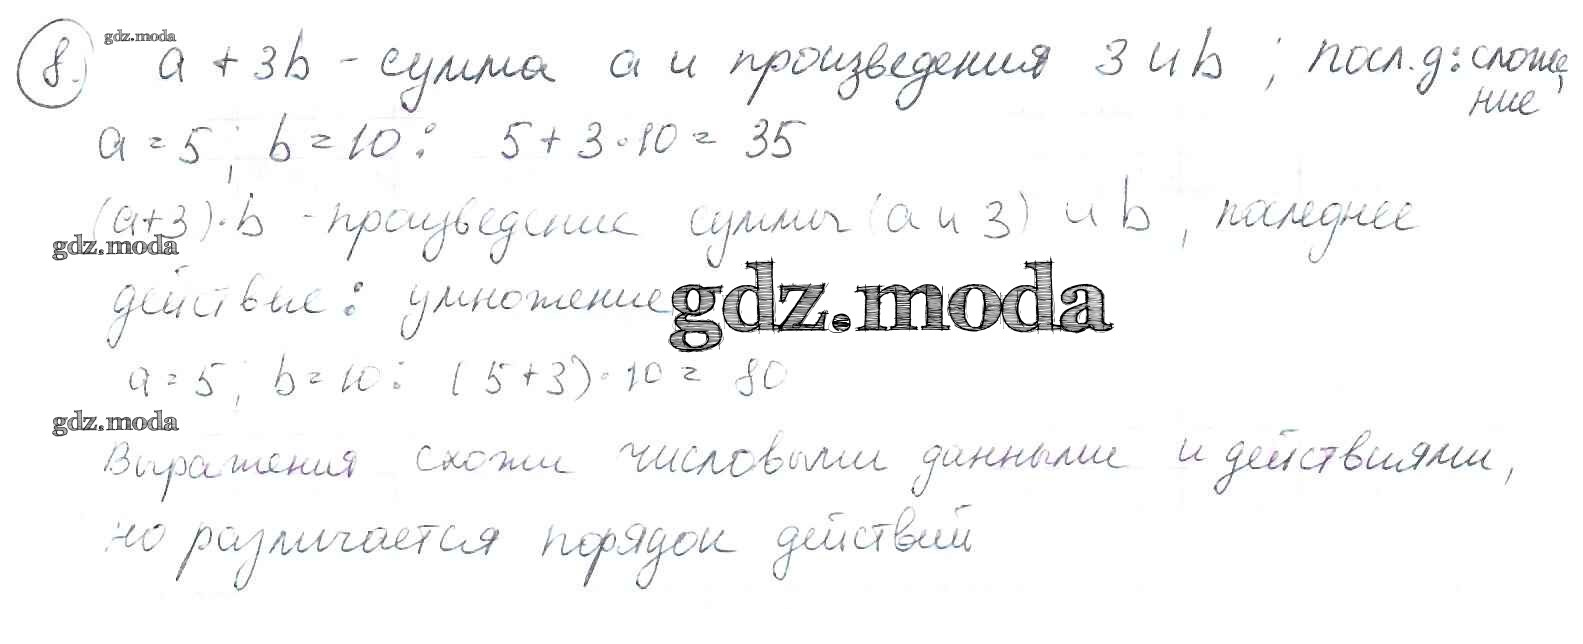 gdz.moda
8. a + 3b - сумма a и произведения 3 и b ; посл. д: сложе
ние,
a = 5 ; b = 10 : 5 + 3 · 10 = 35
(a+3) · b - произведение суммы (a и 3) и b , последнее
gdz.moda
действие : умножение
gdz.moda
a = 5 ; b = 10 : (5+3) · 10 = 80
gdz.moda
Выражения схожи числовыми данными и действиями,
но различается порядок действий